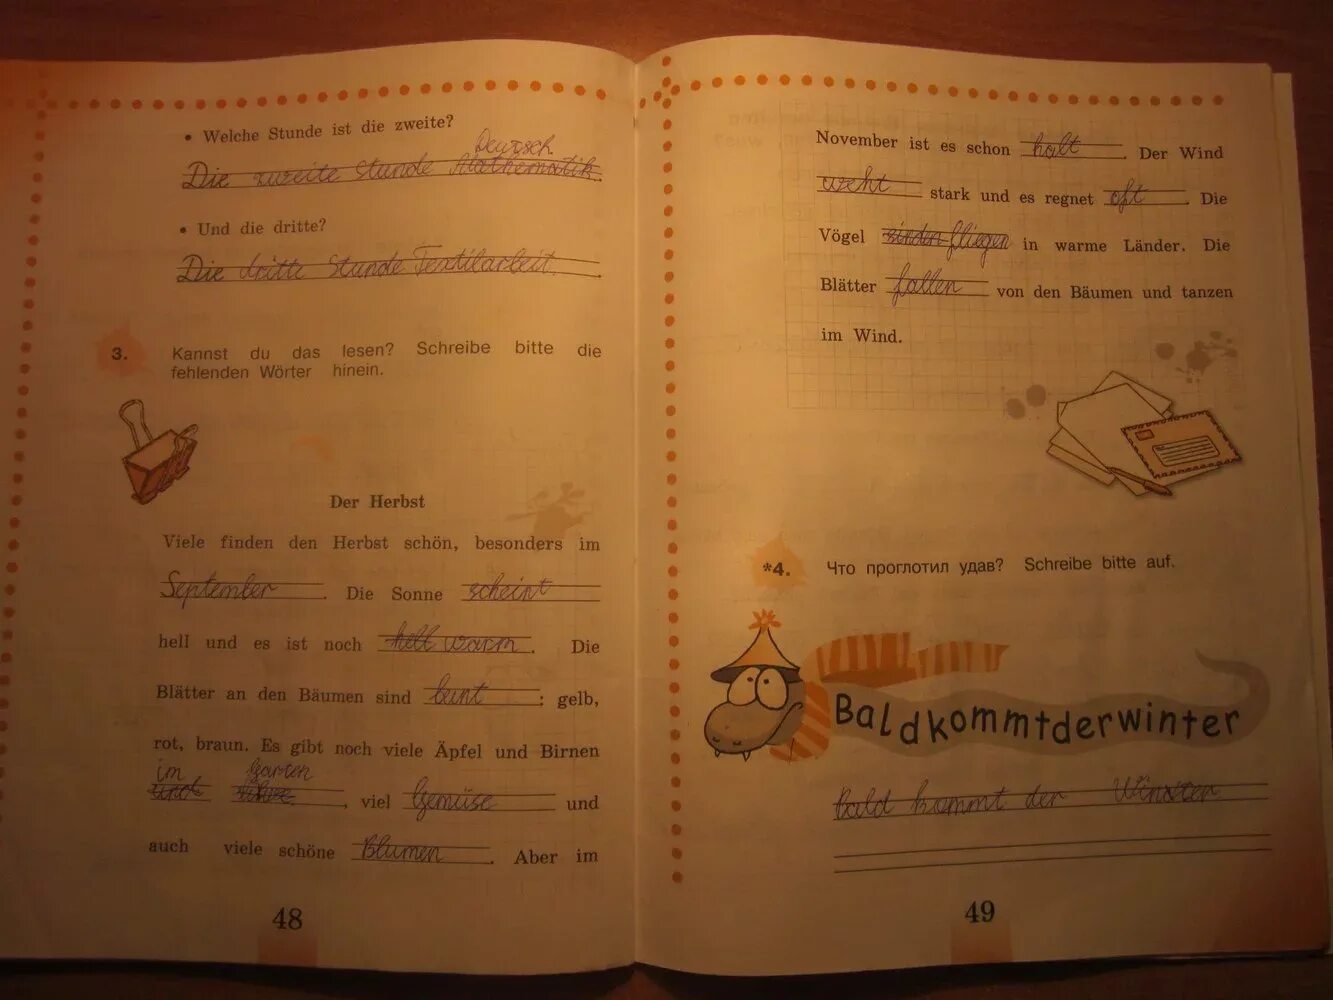 • Welche Stunde ist die zweite?
Deutsch
Die zweite Stunde Mathematik.
• Und die dritte?
Die dritte Stunde Textilarbeit.
3. Kannst du das lesen? Schreibe bitte die
fehlenden Wörter hinein.
Der Herbst
Viele finden den Herbst schön, besonders im
September. Die Sonne scheint
hell und es ist noch hell warm. Die
Blätter an den Bäumen sind bunt: gelb,
rot, braun. Es gibt noch viele Äpfel und Birnen
im Garten
und, viel Gemüse und
auch viele schöne Blumen. Aber im
48
November ist es schon kalt. Der Wind
weht stark und es regnet oft. Die
Vögel fliegen in warme Länder. Die
Blätter fallen von den Bäumen und tanzen
im Wind.
*4. Что проглотил удав? Schreibe bitte auf.
Baldkommtderwinter
Bald kommt der Winter
49